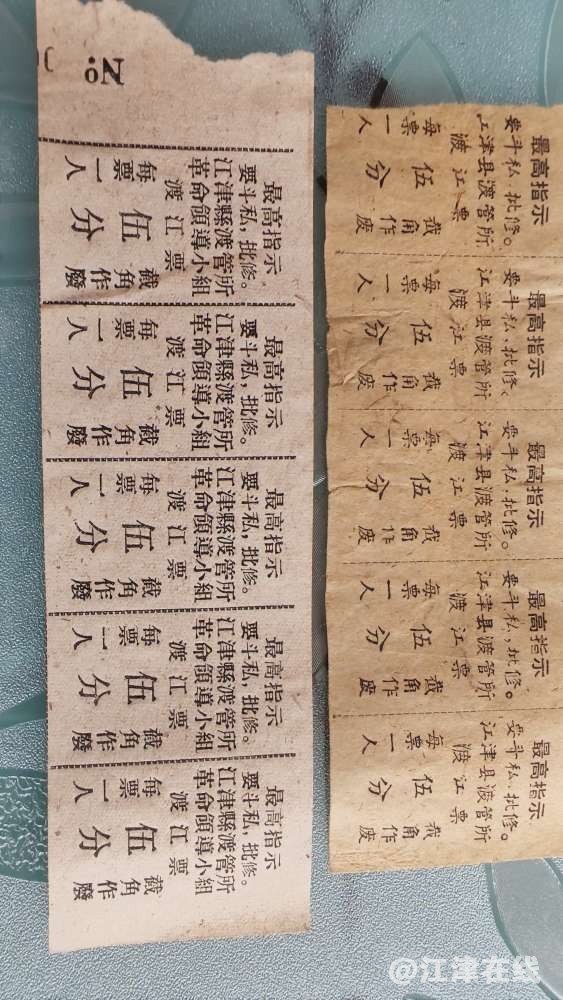 No.
最高指示
要斗私，批修。
江津縣渡管所
革命領導小組
渡江票
每票一人
伍分
截角作廢
最高指示
要斗私，批修。
江津縣渡管所
革命領導小組
渡江票
每票一人
伍分
截角作廢
最高指示
要斗私，批修。
江津縣渡管所
革命領導小組
渡江票
每票一人
伍分
截角作廢
最高指示
要斗私，批修。
江津縣渡管所
革命領導小組
渡江票
每票一人
伍分
截角作廢
最高指示
要斗私，批修。
江津縣渡管所
革命領導小組
渡江票
每票一人
伍分
截角作廢
最高指示
要斗私，批修。
江津县渡管所
渡江票
每票一人
伍分
截角作废
最高指示
要斗私，批修。
江津县渡管所
渡江票
每票一人
伍分
截角作废
最高指示
要斗私，批修。
江津县渡管所
渡江票
每票一人
伍分
截角作废
最高指示
要斗私，批修。
江津县渡管所
渡江票
每票一人
伍分
截角作废
最高指示
要斗私，批修。
江津县渡管所
渡江票
每票一人
伍分
截角作废
@江津在线